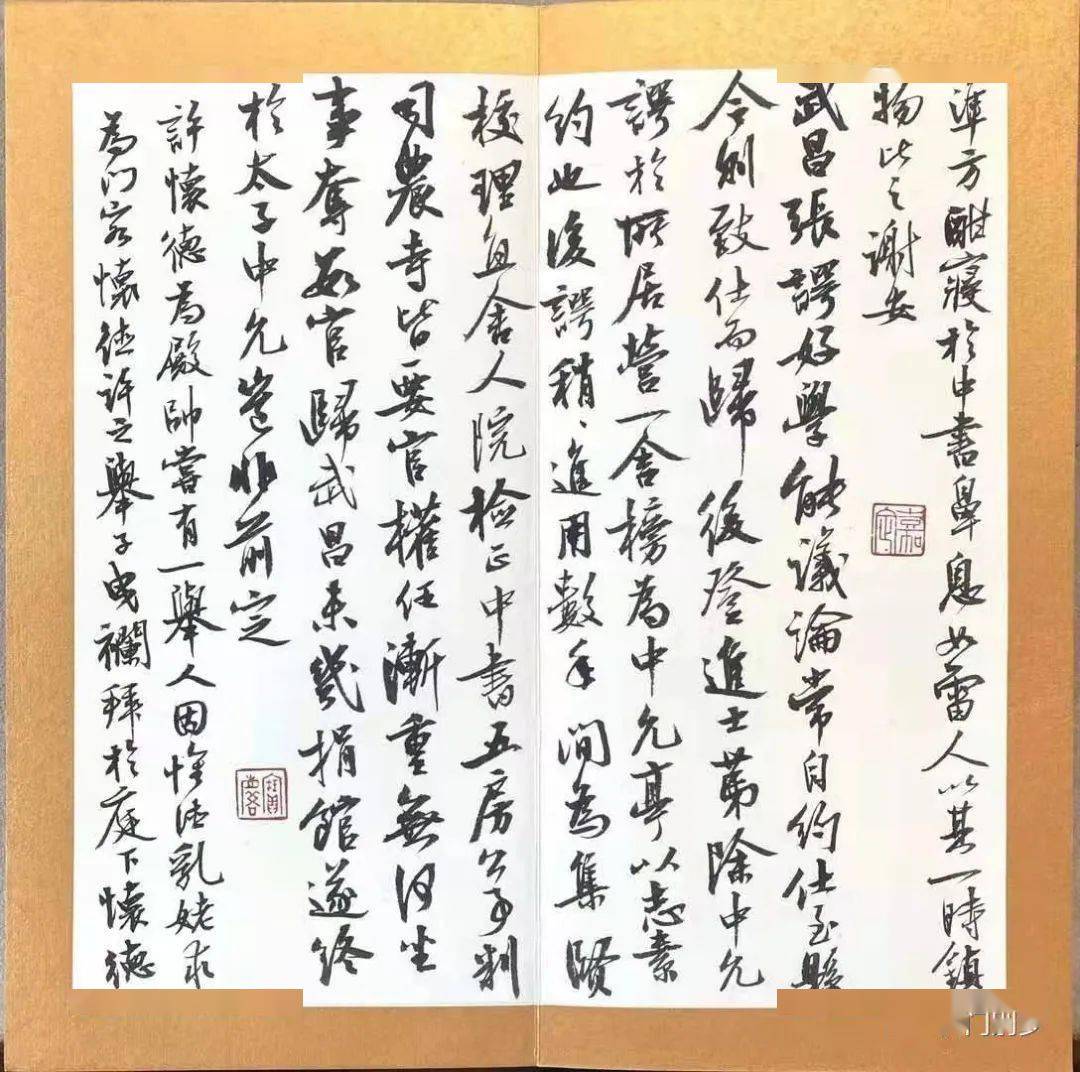 準方酣寢於中書鼻息如雷人以其一時鎮
物比之謝安
武昌張諤好學能議論常自約仕至縣
令則致仕而歸後登進士第除中允
諤於所居營一舍榜為中允亭以志素
約也後諤稍、進用數年間為集賢
校理直舍人院檢正中書五房公事判
司農寺皆要官權任漸重無何坐
事奪數官歸武昌未幾捐館遂終
於太子中允豈非前定
許懷德為殿帥嘗有一舉人因懷德乳姥求
為門客懷德許之舉子曳襴拜於庭下懷德